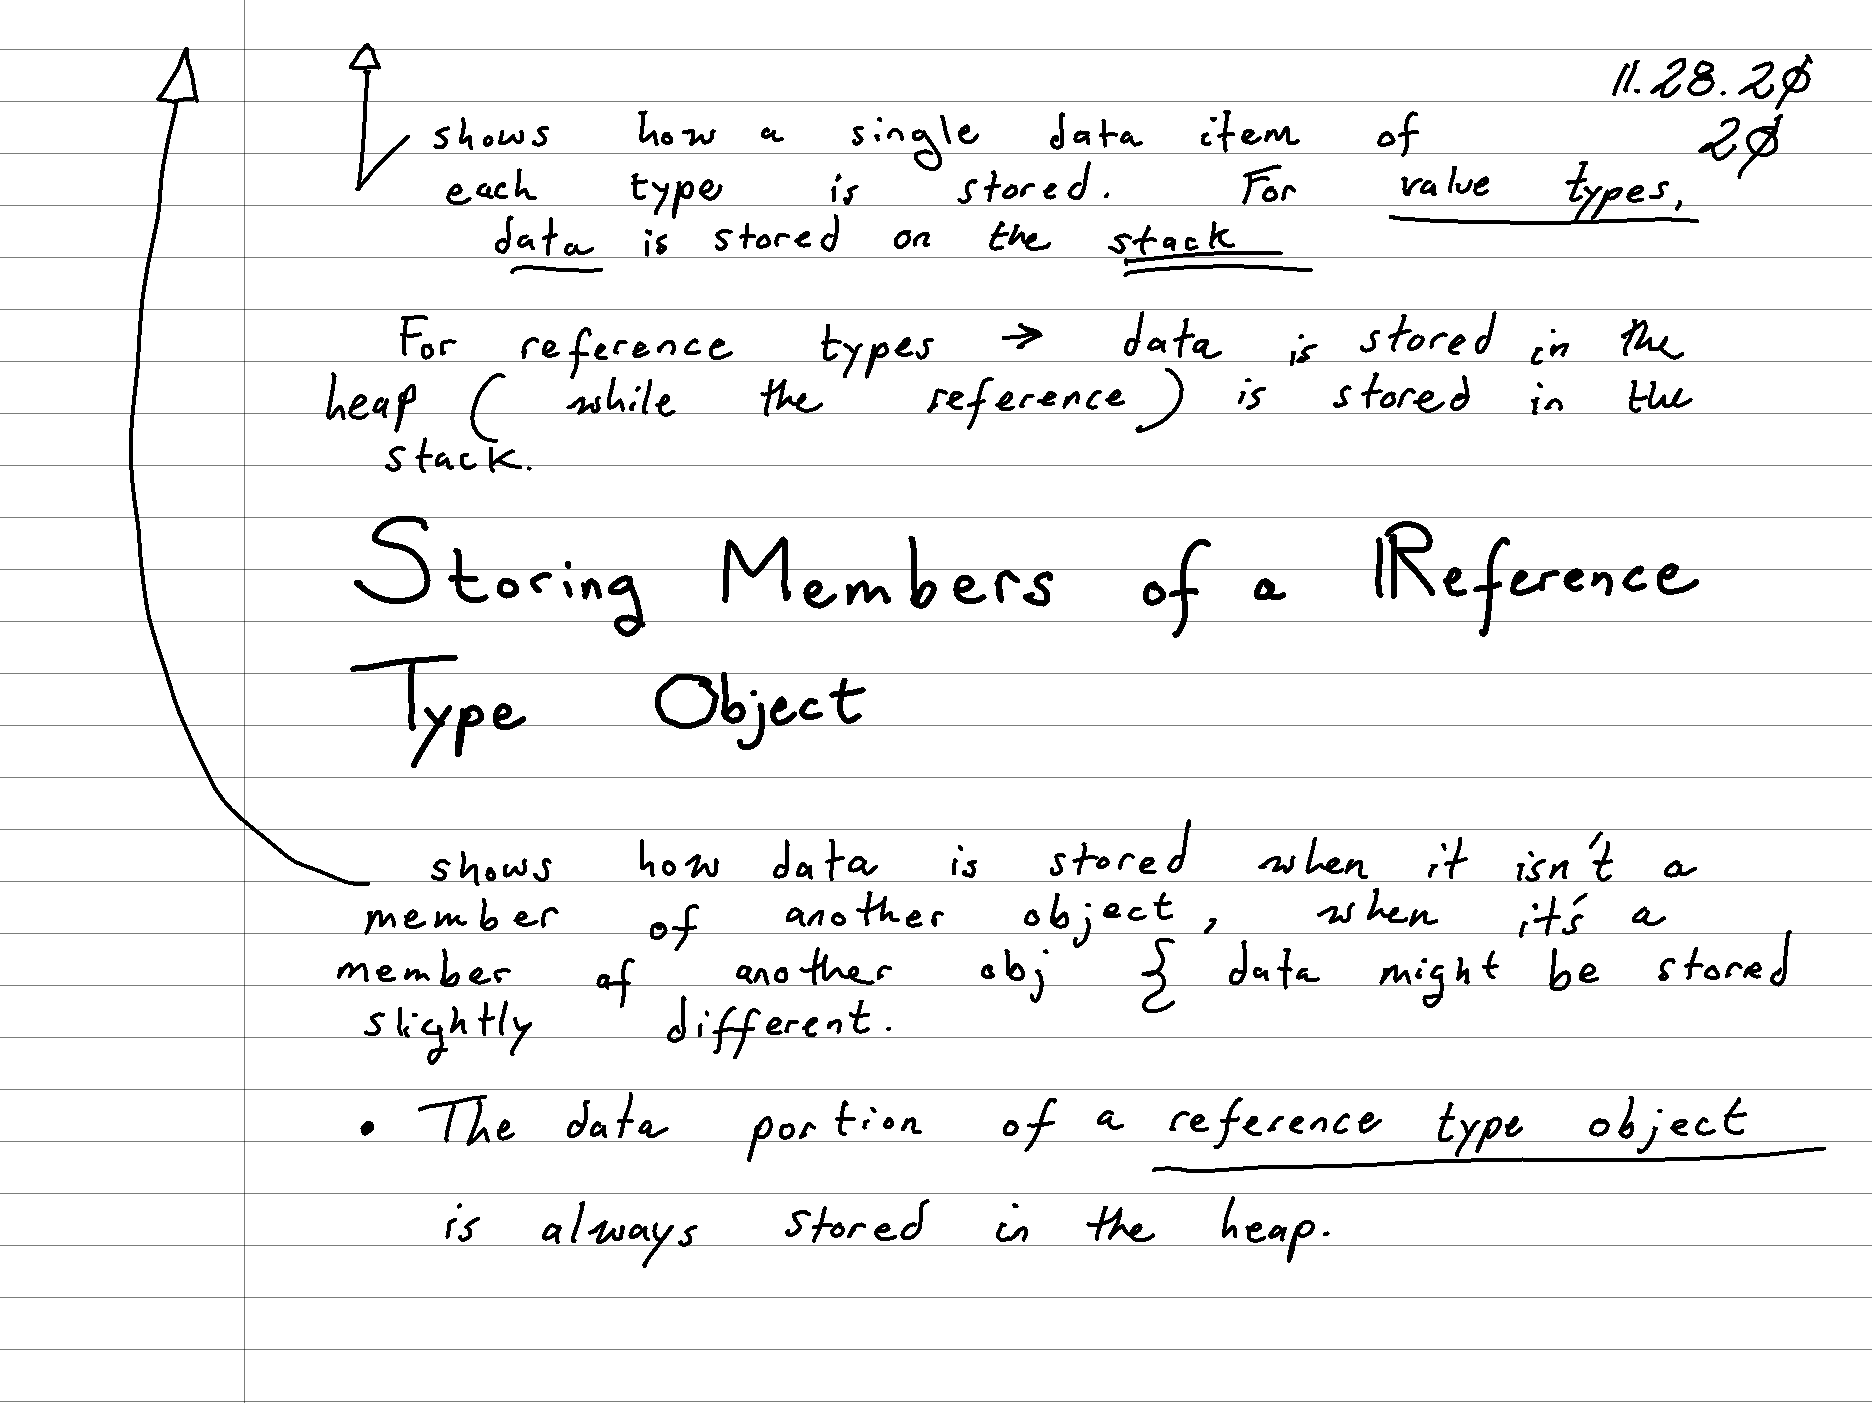 11.28.2ø
2ø
shows how a single data item of
each type is stored. For value types,
data is stored on the stack
For reference types → data is stored in the
heap ( while the reference ) is stored in the
stack.
Storing Members of a Reference
Type Object
shows how data is stored when it isn't a
member of another object, when it's a
member of another obj } data might be stored
slightly different.
• The data portion of a reference type object
is always stored in the heap.